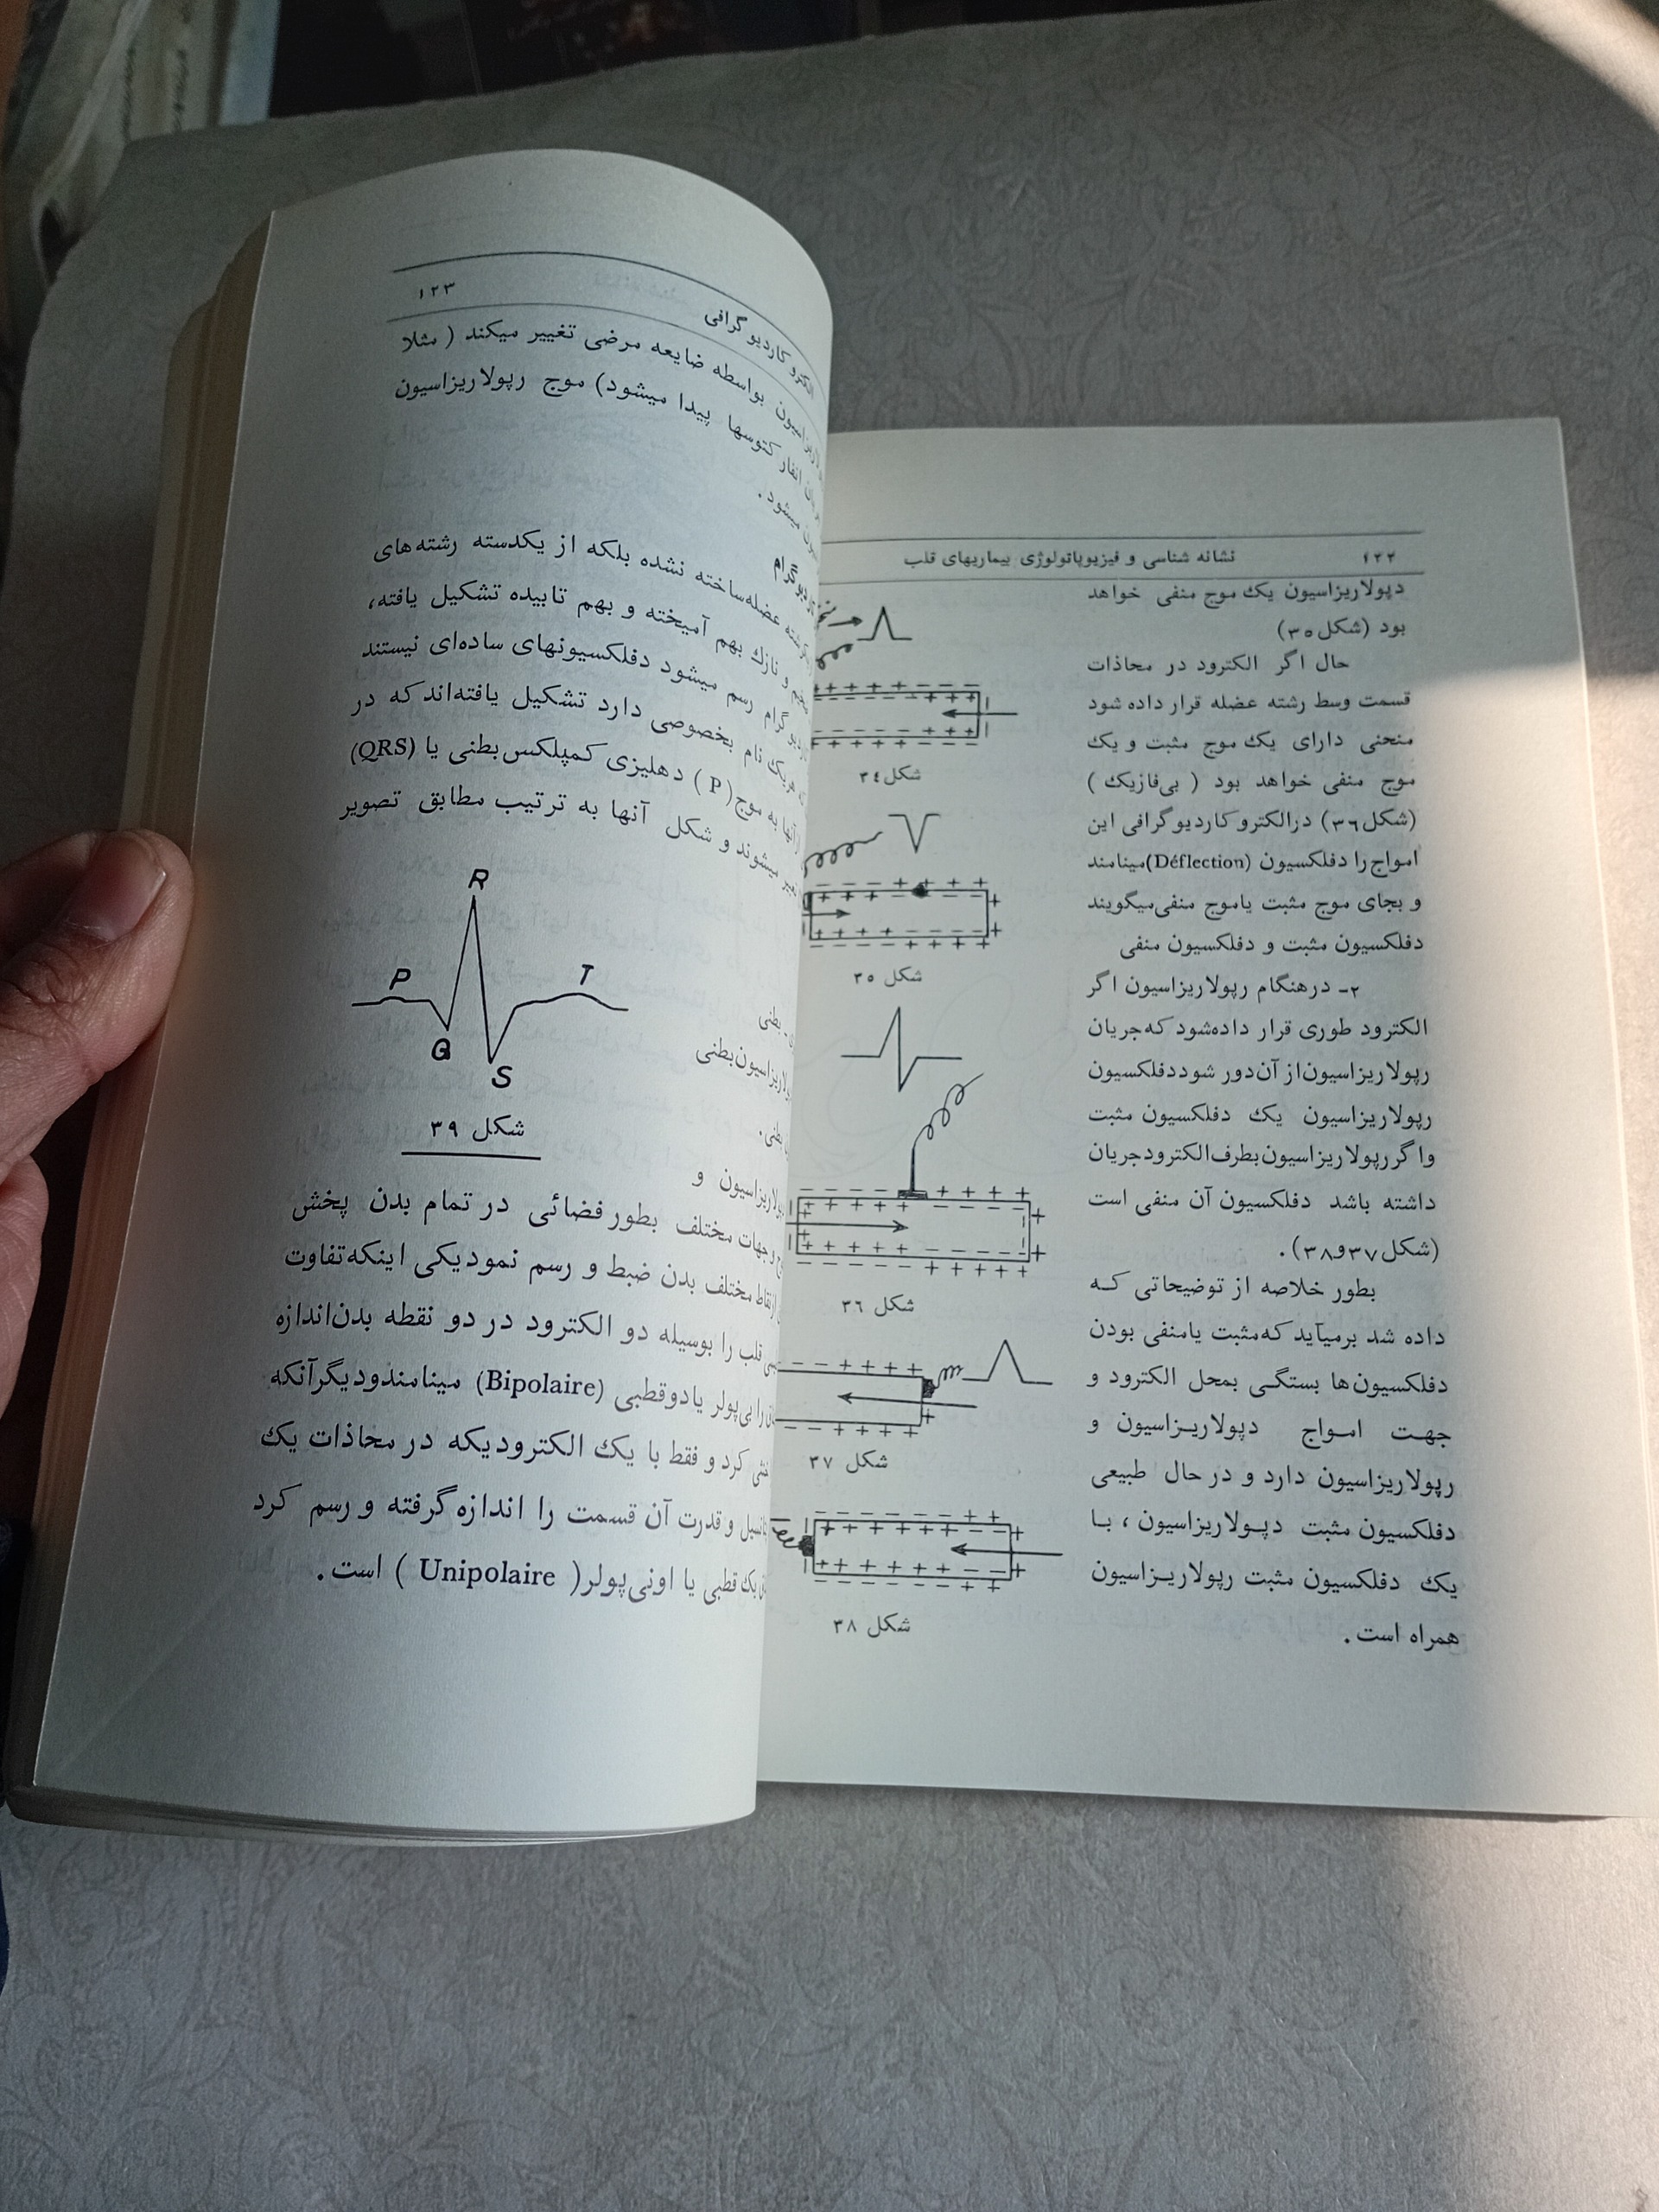 ۱۲۲ نشانه شناسی و فیزیوپاتولوژی بیماریهای قلب
دپولاریزاسیون یک موج منفی خواهد
بود (شکل ۳۵)
حال اگر الکترود در محاذات
قسمت وسط رشته عضله قرار داده شود
منحنی دارای یک موج مثبت و یک
موج منفی خواهد بود ( بی‌فازیک )
(شکل ۳۶) در الکتروکاردیوگرافی این
امواج را دفلکسیون (Déflection) مینامند
و بجای موج مثبت یا موج منفی میگویند
دفلکسیون مثبت و دفلکسیون منفی
۲ـ درهنگام رپولاریزاسیون اگر
الکترود طوری قرار داده‌شود که جریان
رپولاریزاسیون از آن دور شود دفلکسیون
رپولاریزاسیون یک دفلکسیون مثبت
واگر رپولاریزاسیون بطرف الکترود جریان
داشته باشد دفلکسیون آن منفی است
(شکل ۳۷ و ۳۸).
بطور خلاصه از توضیحاتی کـه
داده شد برمیآید که مثبت یا منفی بودن
دفلکسیون‌ها بستگـی بمحل الکترود و
جهت امـواج دپولاریـزاسیون و
رپولاریزاسیون دارد و در حال طبیعی
دفلکسیون مثبت دپـولاریزاسیون ، بـا
یک دفلکسیون مثبت رپولاریـزاسیون
همراه است .
+ + + + + +
شکل ۳۴
شکل ۳۵
شکل ۳۶
شکل ۳۷
شکل ۳۸
الکترو کاردیو گرافی ۱۲۳
بواسطه ضایعه مرضی تغییر میکند ( مثلا
انفار کتوسها پیدا میشود) موج رپولاریزاسیون
میشود.
عضله ساخته نشده بلکه از یکدسته رشته‌های
و نازک بهم آمیخته و بهم تابیده تشکیل یافته،
گرام رسم میشود دفلکسیونهای ساده‌ای نیستند
هریک نام بخصوصی دارد تشکیل یافته‌اند که در
آنها به موج ( P ) دهلیزی کمپلکس بطنی یا (QRS)
میشوند و شکل آنها به ترتیب مطابق تصویر
R
P
T
Q
S
شکل ۳۹
بطنی
بطنی
بطنی.
و
وجهات مختلف بطور فضائی در تمام بدن پخش
نقاط مختلف بدن ضبط و رسم نمود یکی اینکه تفاوت
قلب را بوسیله دو الکترود در دو نقطه بدن اندازه
را بی‌پولر یا دوقطبی (Bipolaire) مینامند و دیگر آنکه
کرد و فقط با یک الکترودیکه در محاذات یک
و قدرت آن قسمت را اندازه گرفته و رسم کرد
یک قطبی یا اونی‌پولر ( Unipolaire ) است .